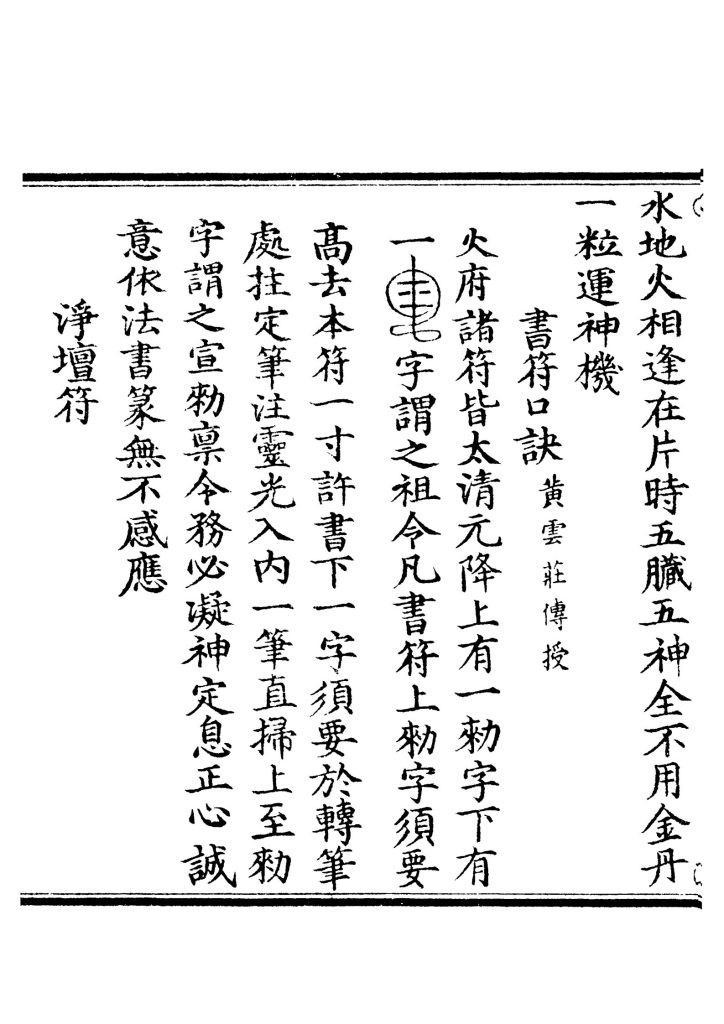 水地火相逢在片時五臟五神全不用金丹
一粒運神機
書符口訣 黄雲莊傳授
火府諸符皆太清元降上有一勑字下有
一字謂之祖令凡書符上勑字須要
高去本符一寸許書下一字須要於轉筆
處拄定筆注靈光入内一筆直掃上至勑
字謂之宣勑禀令務必凝神定息正心誠
意依法書篆無不感應
淨壇符